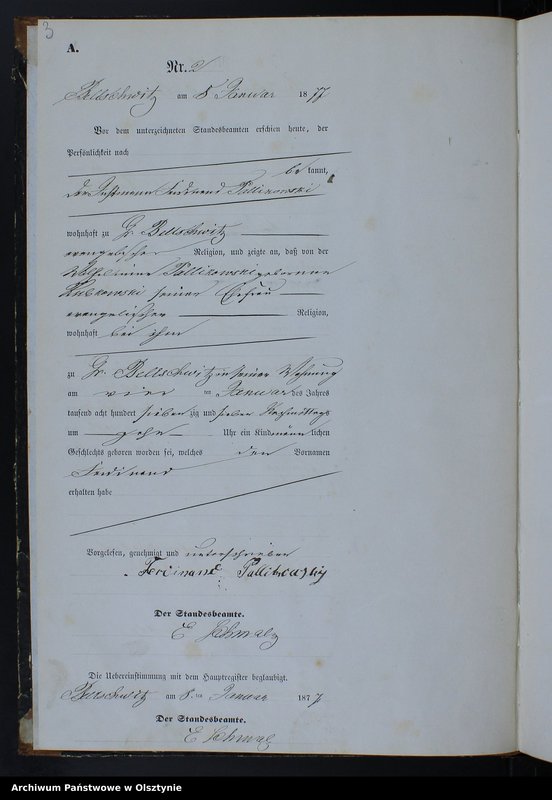 3
A.
Nr. 2
Bellschwitz am 8 Januar 1877
Vor dem unterzeichneten Standesbeamten erschien heute, der
Persönlichkeit nach
be kannt,
der Instmann Ferdinand Pallikowski
wohnhaft zu Gr. Bellschwitz
evangelischer Religion, und zeigte an, daß von der
Wilhelmine Pallikowski geborenen
seiner Ehefrau
evangelischer Religion,
wohnhaft bei ihm
zu Gr. Bellschwitz in seiner Wohnung
am vier ten Januar des Jahres
tausend acht hundert sieben zig und sieben Nachmittags
um zehn Uhr ein Kind männ lichen
Geschlechts geboren worden sei, welches den Vornamen
Ferdinand
erhalten habe
Vorgelesen, genehmigt und unterschrieben
Ferdinand
Der Standesbeamte.
E Schmalz
Die Uebereinstimmung mit dem Hauptregister beglaubigt.
Bellschwitz am 8.ten Januar 1877
Der Standesbeamte.
E Schmalz
Archiwum Państwowe w Olsztynie